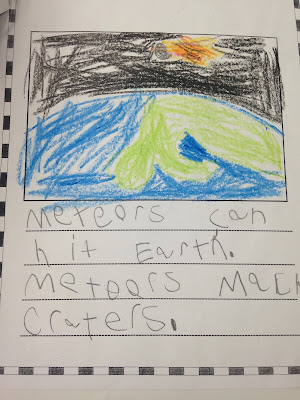 Meteors can
hit Earth.
Meteors Mack
Craters.